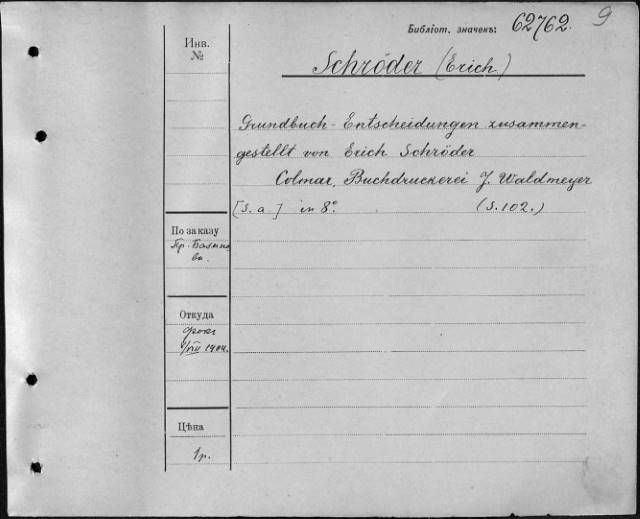 Библіот. значекъ: 62762. 9
Инв.
№
Schröder (Erich.)
Grundbuch-Entscheidungen zusammen-
gestellt von Erich Schröder
Colmar, Buchdruckerei J. Waldmeyer
[s. a] in 8º. (S. 102.)
По заказу
Пр.
Откуда
1904.
Цѣна
1 р.